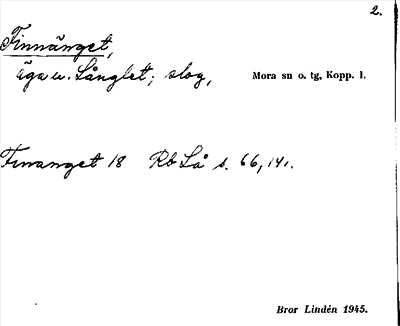 2.
Finnänget,
äga u. Långlet; slog,
Mora sn o. tg, Kopp. l.
Finanget 18 Rb Lå s. 66, 141.
Bror Lindén 1945.